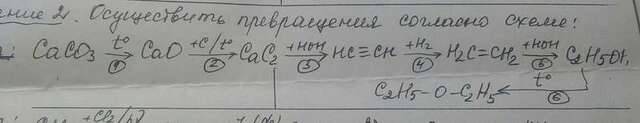 ение 2. Осуществить превращения согласно схеме:
CaCO₃ t° → ① CaO +C/t° → ② CaC₂ +HOH → ③ HC≡CH +H₂ → ④ H₂C=CH₂ +HOH → ⑤ C₂H₅OH,
C₂H₅-O-C₂H₅ ← t° ⑥